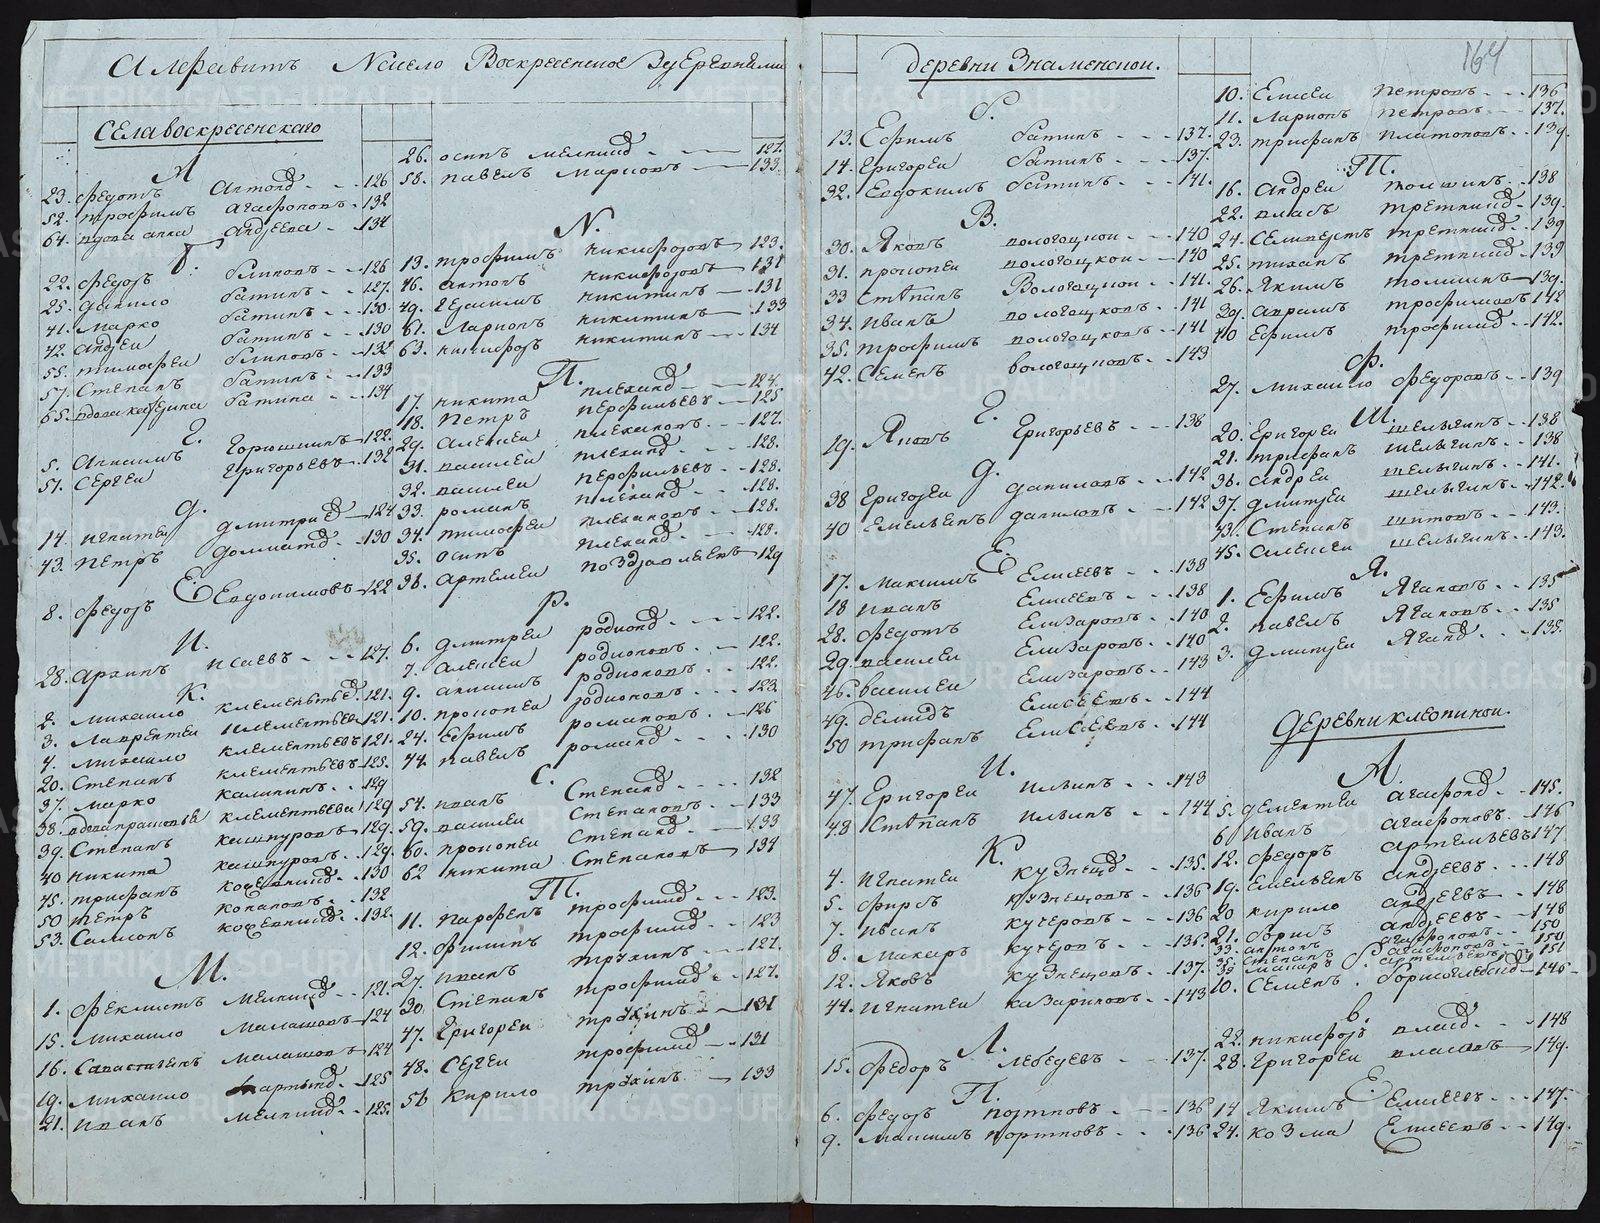 Алфавитъ N село Воскресенское з деревнями
Села воскресенскаго
А
23. федотъ - - 126
52. трофимъ агафоновъ - 132
64. вдова анна андреева - - 134
Б.
22. федоръ блиновъ - - 126
25. данило батинъ - - 127.
41. марко батинъ - - 130
42. андреи батинъ - - 130
55. тимофеи блиновъ - - 132
57. Степанъ батинъ - - 133
65. вдова катерина батина - - 134
Г.
5. Анисимъ Горюшинъ 122.
51. Сергеи Григорьевъ 132
Д.
14. игнатеи дмитриев 124
43. петръ 130
Е
8. федоръ Евдокимовъ 122
И.
28. архипъ исаевъ - - - 127
К.
2. михаило клементьев 121.
3. лаврентеи клементьевъ 121.
4. михаило клементьевъ 121.
20. Степанъ клементьевъ 125.
37. марко калининъ - - 129
38. вдова прасковья клементьева 129
39. Степанъ кашкуровъ 129.
40 никита кашкуровъ - - 129.
45. трифанъ 130
50 петръ конановъ - - 132
53. Самсонъ 132.
М.
1. феклистъ мелкишев - - 121.
15. михаило малашовъ 124
16. Савастиянъ малашовъ 124
19. михаило мартынов - - 125
21. иванъ мелкишев - - 125.
26. осипъ мелкишев - - 127.
58. павелъ марковъ - - 133.
N.
13. трофимъ никифоровъ 123.
46. антонъ никифоровъ 131
49. герасимъ никитинъ 131
61. ларионъ никитинъ 133
63. никифоръ никитинъ - - 134
П.
17. никита плеханов - - 124.
18. петръ перфильевъ - - 125
29. алексеи плехановъ - - 127.
31. василеи плеханов - - 128.
32. василеи перфильевъ - - 128.
33. романъ плеханов - - 128.
34. тимофеи плехановъ - - 128.
35. осипъ плеханов - - 128.
36. артемеи 129
Р.
6. дмитреи родионов - - 122.
7. алексеи родионовъ - - 122.
9. анисимъ родионовъ - - 122.
10. прокопеи родионовъ - - 123.
24. Ефимъ романовъ - - 126
44. павелъ романов - - 130
С.
54. иванъ Степанов - - 132
59. василеи Степановъ - - 133
60. прокопеи Степанов - - 133
62 никита Степановъ 134
Т.
11. парфенъ трофимов - - 123.
12. филипъ трофимов - - 123
27. иванъ трухинъ - - 127.
30. Степанъ трофимов - - 127.
47. григореи трухинъ - - 131
48. Сергеи трофимов - - 131
56 кирило трухинъ - - 133
164
деревни Знаменскои.
Б.
13. Ефимъ батинъ - - - 137.
14. григореи батинъ - - - 137.
32. Евдокимъ батинъ - - - 141.
В.
30. Яковъ вологоцкои - - 140
31. прокопеи вологоцкои - - 140
33 Степанъ вологоцкои - - 141.
34. иванъ вологоцковъ - - 141
35. трофимъ вологоцковъ - - 141
42. Семенъ вологоцковъ - - 143
Г.
19. Яковъ григорьевъ - - - 138
Д.
38 григореи даниловъ - - 142
40 Емельянъ даниловъ - - 142
Е
17. максимъ Елисеевъ - - 138
18 иванъ Елисеевъ - - 138
28. федотъ Елизаровъ - - 140
29. василеи Елизаровъ - - 140
46. василеи Елизаровъ - - 143
49. демидъ Елисеевъ - - 144
50 трифанъ Елисеевъ - - 144
И.
47. григореи ильинъ - - 143
48 Степанъ ильинъ - - 144
К.
4. игнатеи кузнецов - - 135.
5. фирсъ кузнецовъ - - 136
7. иванъ кучеровъ - - 136
8. макаръ кучеровъ - - 136.
12. Яковъ кузнецовъ - - 137.
44. игнатеи казариновъ - - 143
Л.
15. федоръ лебедевъ - - 137.
П.
6. федоръ портновъ - - 136
9. максимъ портновъ - - 136
10. Елисеи петровъ - - 136
11. ларионъ петровъ - - 137.
23. трифанъ платоновъ - - 139.
Т.
16. андреи толшинъ - - 138
22. власъ третников - 139.
24. Селиверстъ третников - 139
25. михаилъ третников - 139
26. Якимъ толшинъ 139.
39. авраамъ трофимовъ 142
40 Ефимъ трофимов - - 142.
Ф.
27. михаило федоровъ - - 139
Ш.
20. григореи шелыгинъ - - 138
21. трифанъ шелыгинъ - - 138
36. андреи шелыгинъ - - 141.
37. дмитреи шелыгинъ - - 142.
43. Степанъ шитовъ - - 143.
45. алексеи шелыгинъ - - 143.
Я.
1. Ефимъ Ягановъ - - 135
2. павелъ Ягановъ - - 135
3. дмитреи Яганов - - 135.
деревни клеопинои.
А.
5. дементеи агафонов - - 145.
6 иванъ агафоновъ - - 146
12. федоръ артемьевъ 147
19. Емельянъ андреевъ - - 148
20 кирило андреевъ - - 148
21. борисъ андреевъ - - 148
33. антонъ агафоновъ - - 150
35. Степанъ агафоновъ - - 150
39 макаръ артемьевъ - - 151
Б.
10. Семенъ 146
В.
22. никифоръ власов - - 148
28. григореи власовъ 149.
Е
14 Якимъ Елисеевъ - - 147.
24. козма Елисеевъ - - 149.